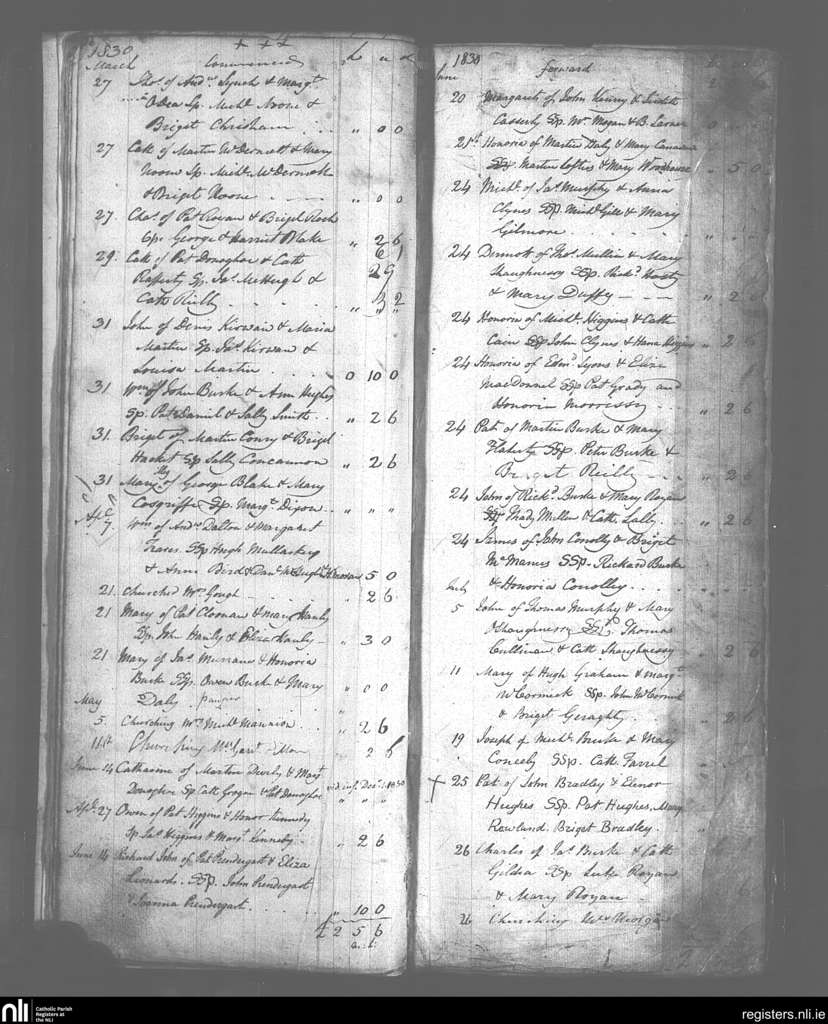 1830
March
Commenced
27 Thos. of Andw. Lynch & Margt.
Owen Sp. Michl. Noone &
Briget Chrisham . . " 0 0
27 Cath of Martin McDermott & Mary
Noone Sp. Michl. McDermott
& Briget Noone . . " 0 0
27. Chas. of Pat Rowan & Briget Roch
Sps. George & Harriet Blake " 2 6
29. Cath of Pat Donoghoe & Cath
Raferty Sp. Jas. McHugh &
Cath Reilly
31 John of Denis Kirwan & Maria
Martin Sp. Jas. Kirwan &
Louisa Martin . . 0 10 0
31 Wm. of John Burke & Ann Hughes
Sp. Pat Daniel & Sally Smith . . " 2 6
31. Briget of Martin Conry & Briget
Hacket Sp Sally Concannon " 2 6
31 Mary of George Blake & Mary
Cosgriffe Sp. Margt. Dixon . . " " "
Apl. 7 Wm of Andw. Dalton & Margaret
SSp Hugh Mullarkey
& Anne Bird & Danl. McHugh 5 0
21. Churched Mrs. Gough . . 2 6
21 Mary of Pat Cloonan & Mary Hanly
Sp. John Hanly & Eliza Hanly " 3 0
21 Mary of Jas. Murrane & Honoria
Burke SSp. Owen Burke & Mary " 0 0
Daly pauper
May
5. Churching Mrs. Michl. Mannion . . " 2 6
11th Churching Mrs. 2 6
June 14 Catharine of Martin & Margt.
Donoghoe Sp Cath Grogan & Pat Donoghoe " " "
Apl. 27 Owen of Pat Higgins & Honor Kennedy
Sp Jas. Higgins & Margt. Kennedy . " 2 6
June 14 Richard John of Pat Prendergast & Eliza
Leonard. SSp. John Prendergast
& Joanna Prendergast. . . " 10 0
£ 2 5 6
1830
June
forward
20 Margaret of John Henry & Judith
Casserly SSp. Wm. Mogan & B. Larner
21st Honoria of Martin Daly & Mary
SSp. Martin Loftus & Mary Woodhouse " 5 0
24 Michl. of Jas. Murphy & Anna
Clynes SSp. Michl. Gill & Mary
Gilmore . . " " "
24 Dermott of Thos. Mullin & Mary
Shaughnessy SSp. Richd. Hosty
& Mary Duffy — — " 2 6
24 Honoria of Michl. Higgins & Cath
Cain SSp John Clynes & Hana Higgins " 2 6
24 Honoria of Edmd. Lyons & Eliza
MacDonnel SSp Pat Grady and
Honoria Morrissy . . " 2 6
24 Pat. of Martin Burke & Mary
Flaherty SSp. Peter Burke &
Briget Reilly — . . " 2 6
24 John of Richd. Burke & Mary Ryan
SSp. Thady Mullen & Cath. Lally . . " 2 6
24 James of John Conolly & Briget
McManus SSp. Rickard Burke
& Honoria Conolly . .
July
5 John of Thomas Murphy & Mary
OShaughnessy SSp. Thomas
Cullinan & Cath Shaughnessy " 2 6
11 Mary of Hugh Graham & Margt.
McCormick SSp. John McCormick
& Briget Geraghty . . " 2 6
19 Joseph of Michl. Burke & Mary
Coneely SSp. Cath. Farrel
+ 25 Pat. of John Bradley & Elenor
Hughes SSp. Pat Hughes, Mary
Rowland. Briget Bradley.
26 Charles of Jas. Burke & Cath
Gildea SSp Luke Ryan
& Mary Ryan
26 Churching Mrs.
nli
Catholic Parish
Registers at
the NLI
registers.nli.ie